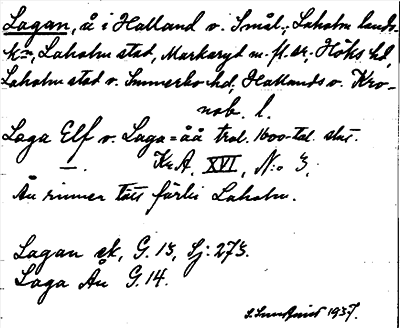 Lagan, å i Halland o. Smål.; Laholm lands-
km, Laholm stad, Markaryd m. fl. sr; Höks hd,
Laholm stad o. Sunnerbo hd; Hallands o. Kro-
nob. l.
Laga Elf o. Laga=åå trol. 1600-tal. slut.
—. Kr.A. XVI, N:o 3.
Ån rinner tätt förbi Laholm.
Lagan ek, G. 13, Sj: 273.
Laga Åu G. 14.
1937.